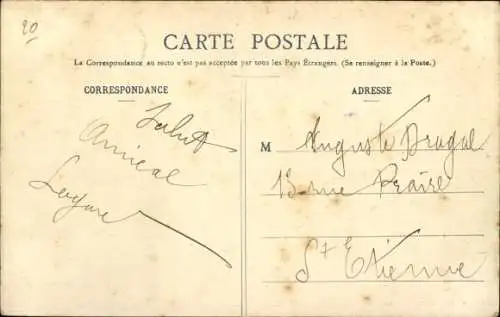 20
CARTE POSTALE
La Correspondance au recto n'est pas acceptée par tous les Pays Étrangers. (Se renseigner à la Poste.)
CORRESPONDANCE
Salut
Amical
ADRESSE
M Auguste Dragol
13 rue Praire
St Etienne